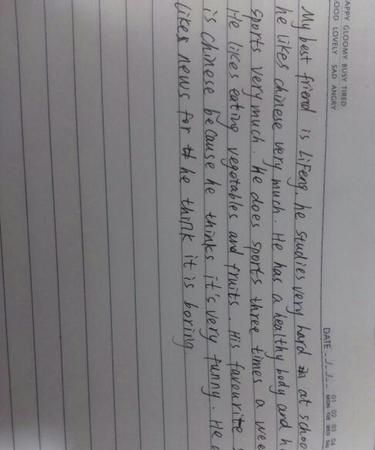 APPY GLOOMY BUSY TIRED
OOD LOVELY SAD ANGRY
DATE 01 02 03 04
MON TUE WED
My best friend is LiFeng. he studies very hard at schoo
he likes chinese very much. He has a healthy body and h
sports very much. He does sports three times a wee
He likes eating vegetables and fruits. His favourite
is chinese because he thinks it's very funny. He
likes news for he think it is boring